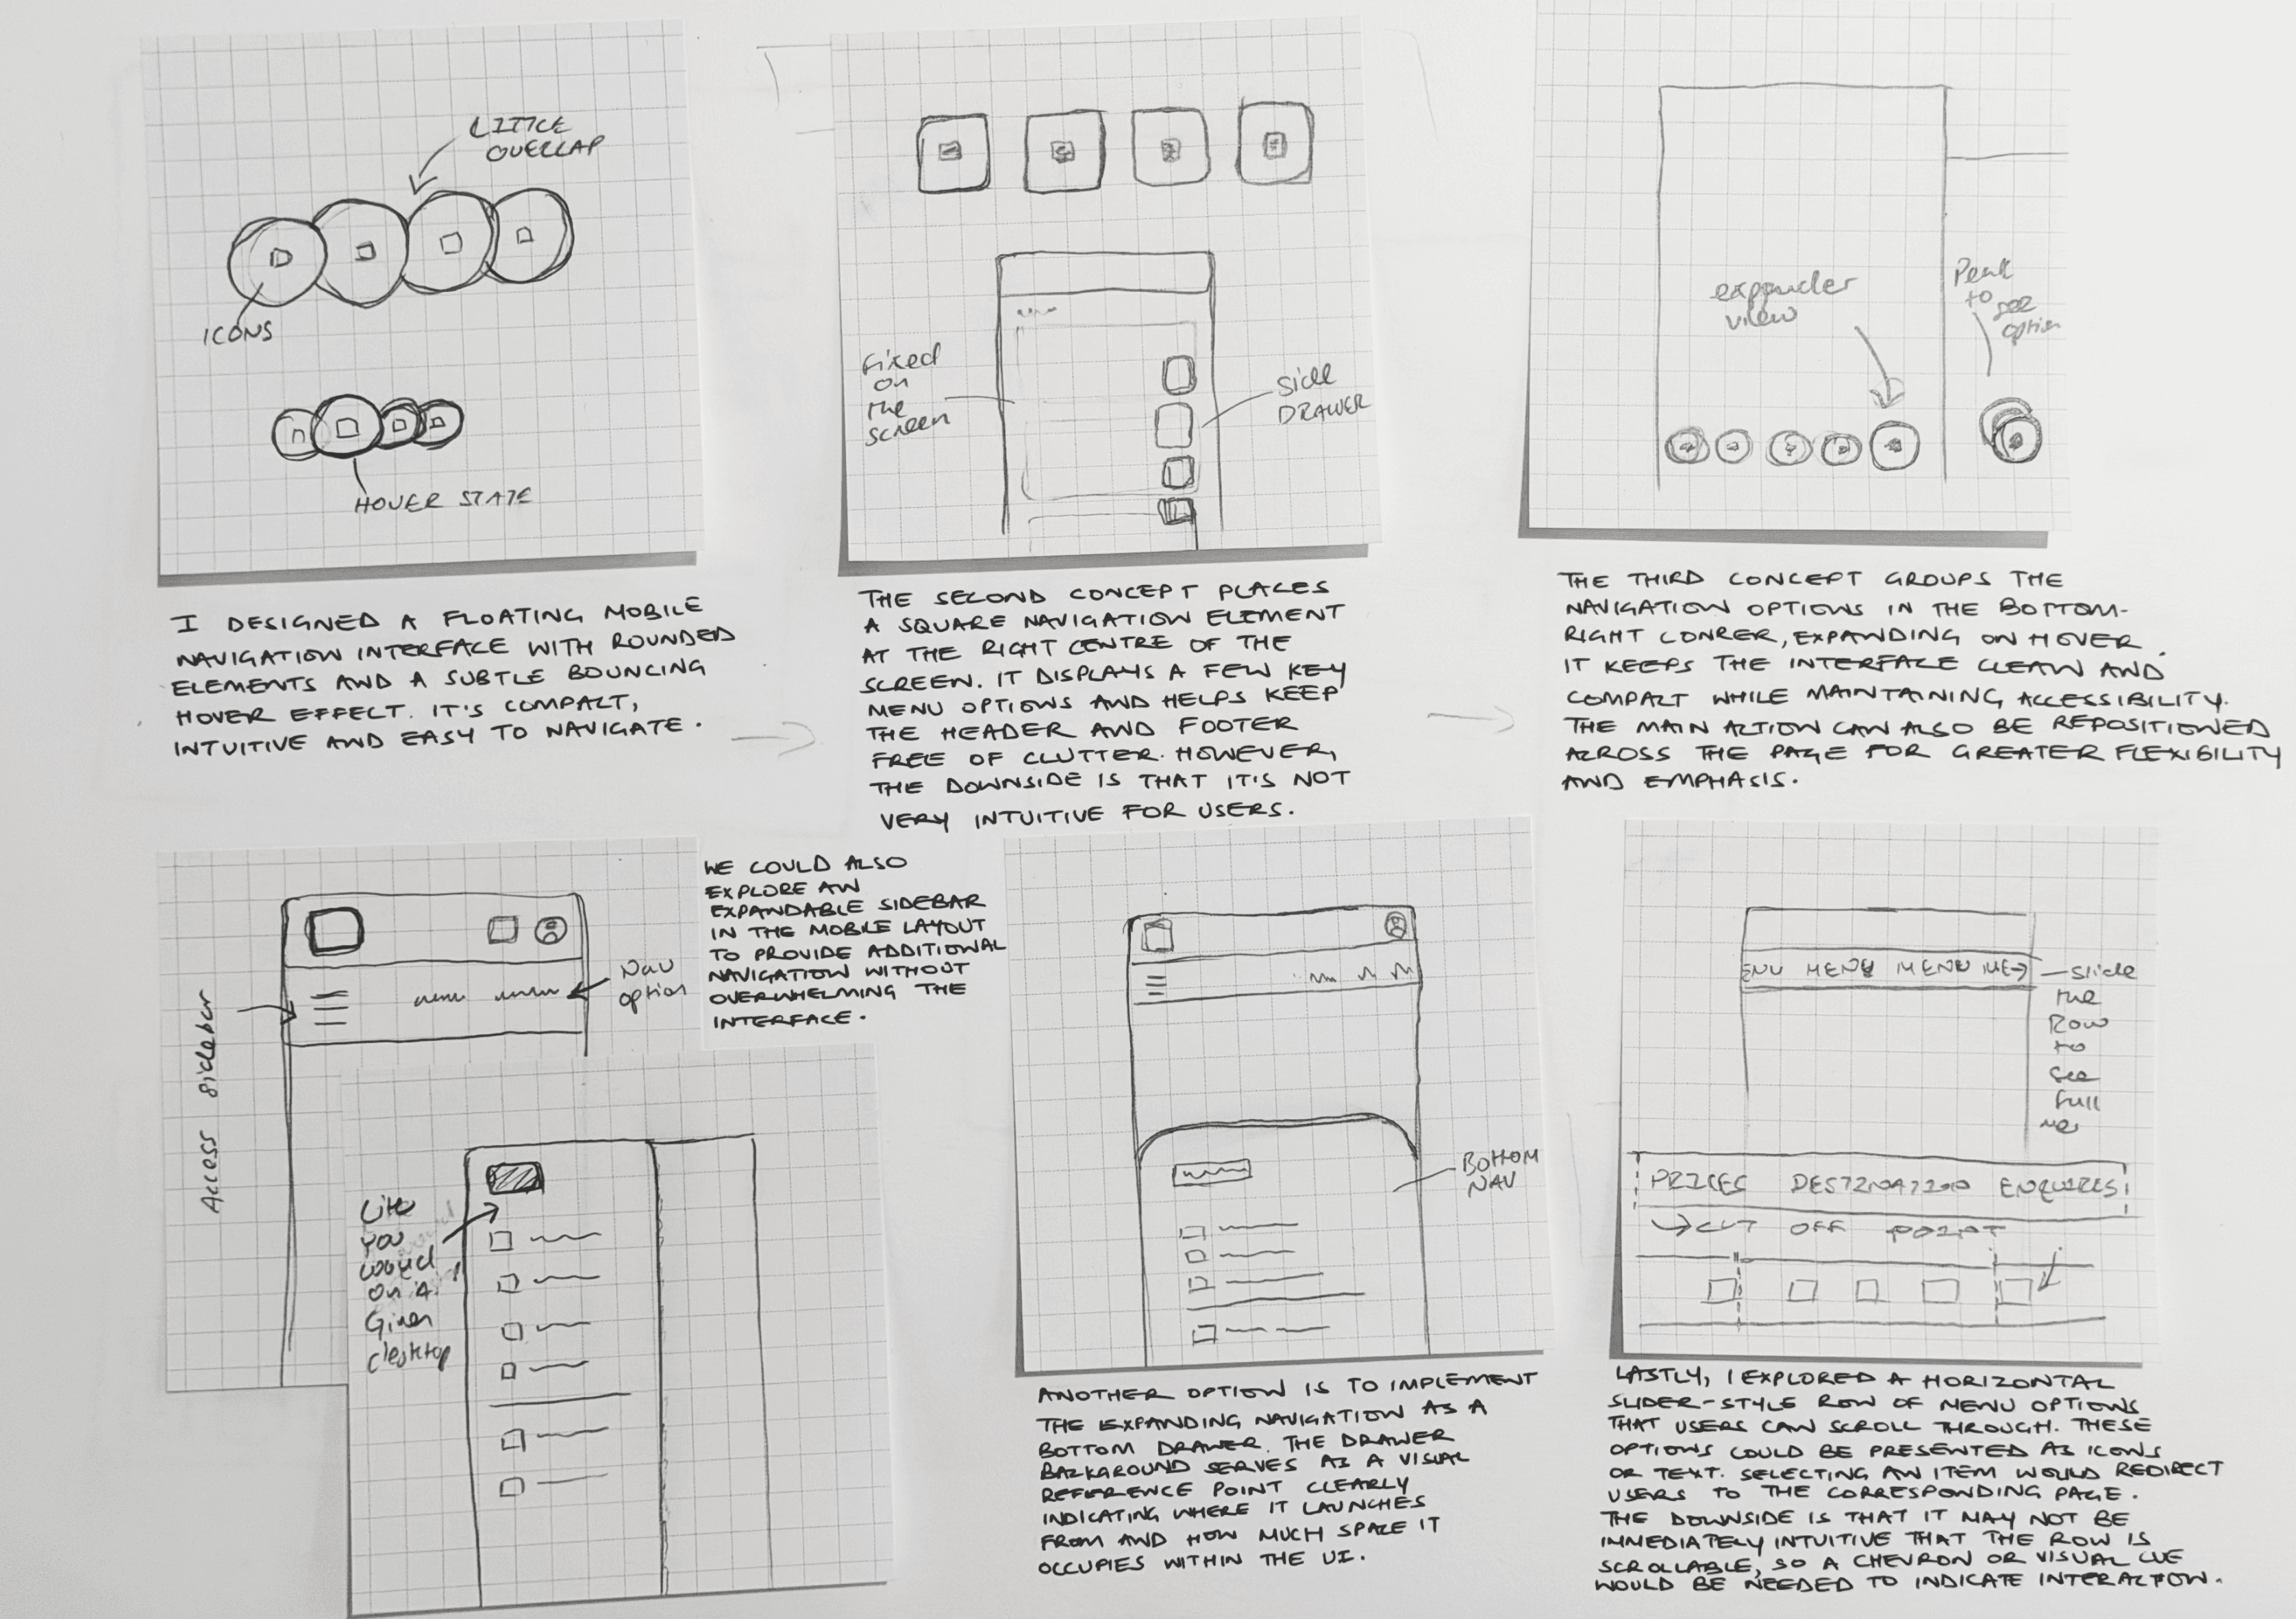 LITTLE
OVERLAP
ICONS
HOVER STATE
I DESIGNED A FLOATING MOBILE
NAVIGATION INTERFACE WITH ROUNDED
ELEMENTS AND A SUBTLE BOUNCING
HOVER EFFECT. IT'S COMPACT,
INTUITIVE AND EASY TO NAVIGATE.
Fixed
on
the
screen
Side
DRAWER
THE SECOND CONCEPT PLACES
A SQUARE NAVIGATION ELEMENT
AT THE RIGHT CENTRE OF THE
SCREEN. IT DISPLAYS A FEW KEY
MENU OPTIONS AND HELPS KEEP
THE HEADER AND FOOTER
FREE OF CLUTTER. HOWEVER,
THE DOWNSIDE IS THAT IT'S NOT
VERY INTUITIVE FOR USERS.
expander
view
Peak
to
see
option
THE THIRD CONCEPT GROUPS THE
NAVIGATION OPTIONS IN THE BOTTOM-
RIGHT CONRER, EXPANDING ON HOVER.
IT KEEPS THE INTERFACE CLEAN AND
COMPACT WHILE MAINTAINING ACCESSIBILITY.
THE MAIN ACTION CAN ALSO BE REPOSITIONED
ACROSS THE PAGE FOR GREATER FLEXIBILITY
AND EMPHASIS.
Access sidebar
Nav
option
WE COULD ALSO
EXPLORE AN
EXPANDABLE SIDEBAR
IN THE MOBILE LAYOUT
TO PROVIDE ADDITIONAL
NAVIGATION WITHOUT
OVERWHELMING THE
INTERFACE.
you
would
on a
Given
desktop
BOTTOM
NAV
ANOTHER OPTION IS TO IMPLEMENT
THE EXPANDING NAVIGATION AS A
BOTTOM DRAWER. THE DRAWER
BACKGROUND SERVES AS A VISUAL
REFERENCE POINT CLEARLY
INDICATING WHERE IT LAUNCHES
FROM AND HOW MUCH SPACE IT
OCCUPIES WITHIN THE UI.
ENU MENU MENU ME
slide
the
Row
to
see
full
PRICES DESTINATION ENQUIRES
CUT OFF POINT
LASTLY, I EXPLORED A HORIZONTAL
SLIDER-STYLE ROW OF MENU OPTIONS
THAT USERS CAN SCROLL THROUGH. THESE
OPTIONS COULD BE PRESENTED AS ICONS
OR TEXT. SELECTING AN ITEM WOULD REDIRECT
USERS TO THE CORRESPONDING PAGE.
THE DOWNSIDE IS THAT IT MAY NOT BE
IMMEDIATELY INTUITIVE THAT THE ROW IS
SCROLLABLE, SO A CHEVRON OR VISUAL CUE
WOULD BE NEEDED TO INDICATE INTERACTION.